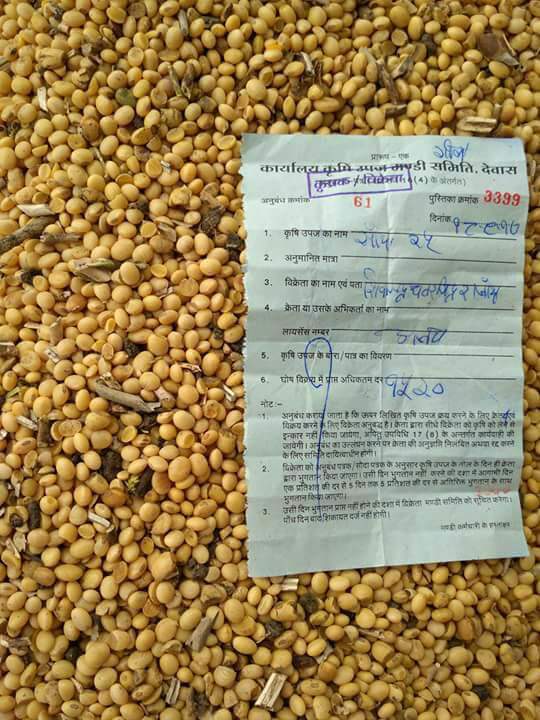 प्रारूप - एक
कार्यालय कृषि उपज मण्डी समिति, देवास
कृषक / विक्रेता (4) के अंतर्गत)
अनुबंध क्रमांक 61 पुस्तिका क्रमांक 3399
दिनांक
1. कृषि उपज का नाम
2. अनुमानित मात्रा
3. विक्रेता का नाम एवं पता
4. क्रेता या उसके अभिकर्ता का नाम
लायसेंस नम्बर
5. कृषि उपज के बोरा / पात्र का विवरण
6. घोष विक्रय में प्राप्त अधिकतम दर
नोट :-
1. अनुबंध कराया जाता है कि ऊपर लिखित कृषि उपज क्रय करने के लिए क्रेता एवं
विक्रय करने के लिए विक्रेता अनुबद्ध है। क्रेता द्वारा सीधे विक्रेता को कृषि को लेने से
इन्कार नहीं किया जायेगा, अपितु उपविधि 17 (8) के अन्तर्गत कार्यवाही की
जायेगी। अनुबंध का उल्लंघन करने पर क्रेता की अनुज्ञप्ति निलंबित अथवा रद्द करने
के लिए समिति दायित्वाधीन होगी।
2. विक्रेता को अनुबंध पत्रक / सौदा पत्रक के अनुसार कृषि उपज के तौल के दिन ही क्रेता
द्वारा भुगतान किया जाएगा। उसी दिन भुगतान नहीं करने की दशा में आगामी दिन
एक प्रतिशत की दर से 5 दिन तक 5 प्रतिशत की दर से अतिरिक्त भुगतान के साथ
भुगतान किया जाएगा।
3. उसी दिन भुगतान प्राप्त नहीं होने की दशा में विक्रेता मण्डी समिति को सूचित करेगा।
पाँच दिन बाद शिकायत दर्ज नहीं होगी।
मण्डी कर्मचारी के हस्ताक्षर